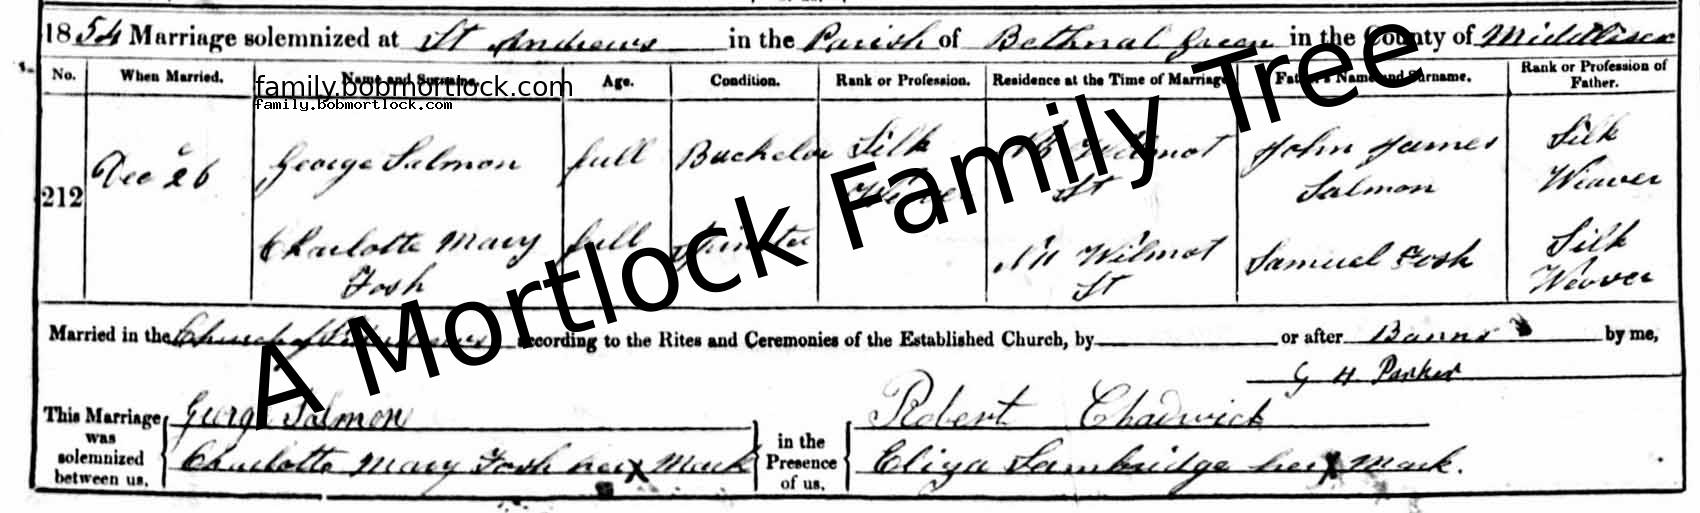 1854 Marriage solemnized at St Andrews in the Parish of Bethnal Green in the County of Middlesex
No. When Married. Name and Surname. Age. Condition. Rank or Profession. Residence at the Time of Marriage. Father's Name and Surname. Rank or Profession of Father.
family.bobmortlock.com
family.bobmortlock.com
212 Dec 26 George Salmon full Bachelor Silk Weaver Wilmot St John James Salmon Silk Weaver
Charlotte Mary Fosh full Spinster Wilmot St Samuel Fosh Silk Weaver
A Mortlock Family Tree
Married in the Church of St Andrews according to the Rites and Ceremonies of the Established Church, by or after Banns by me,
G H Parker
This Marriage was solemnized between us,
George Salmon
Charlotte Mary Fosh her X Mark
in the Presence of us,
Robert Chadwick
Eliza Sambridge her X Mark.